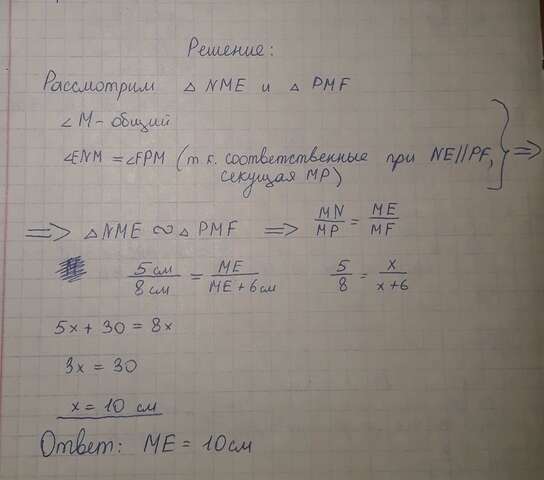 Решение:
Рассмотрим △ NME и △ PMF
∠ M - общий
∠ENM = ∠FPM (т.к. соответственные при NE∥PF, секущая MP) } =>
=> △NME ∾ △PMF => MN/MP = ME/MF
5см/8см = ME/ME+6см 5/8 = x/x+6
5x + 30 = 8x
3x = 30
x = 10 см
Ответ: ME = 10см